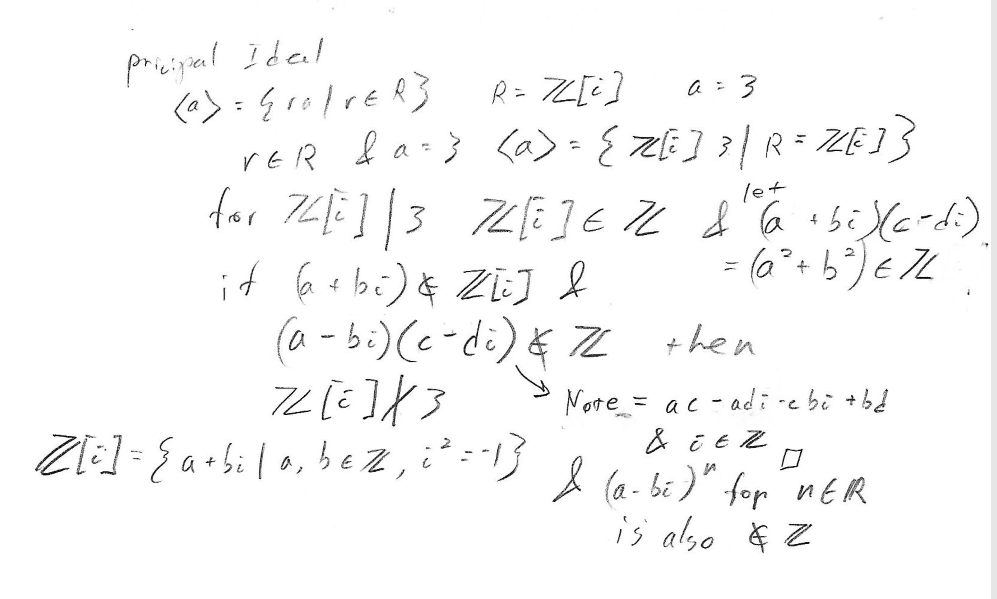 pricipal Ideal
⟨a⟩ = {ra | r ∈ R} R = ℤ[i] a = 3
r ∈ R & a = 3 ⟨a⟩ = {ℤ[i] 3 | R = ℤ[i]}
for ℤ[i] | 3 ℤ[i] ∈ ℤ & let (a + bi)(c - di)
= (a² + b²) ∈ ℤ.
if (a + bi) ∉ ℤ[i] &
(a - bi)(c - di) ∉ ℤ then
ℤ[i] ∤ 3
Note = ac - adi - cbi + bd
& i ∈ ℤ □
ℤ[i] = {a + bi | a, b ∈ ℤ, i² = -1}
& (a - bi)ⁿ for n ∈ ℝ
is also ∉ ℤ